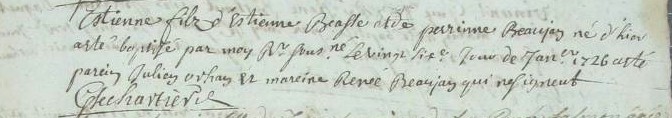 Estienne filz d'Estienne Beasse et de perrinne Beaujan né d'hier
a esté baptissé par moy Pr sous.né Le vingt sixe Jour de Janer 1726 a esté
parein Julien orhan et mareine Renee Beaujan qui ne signent